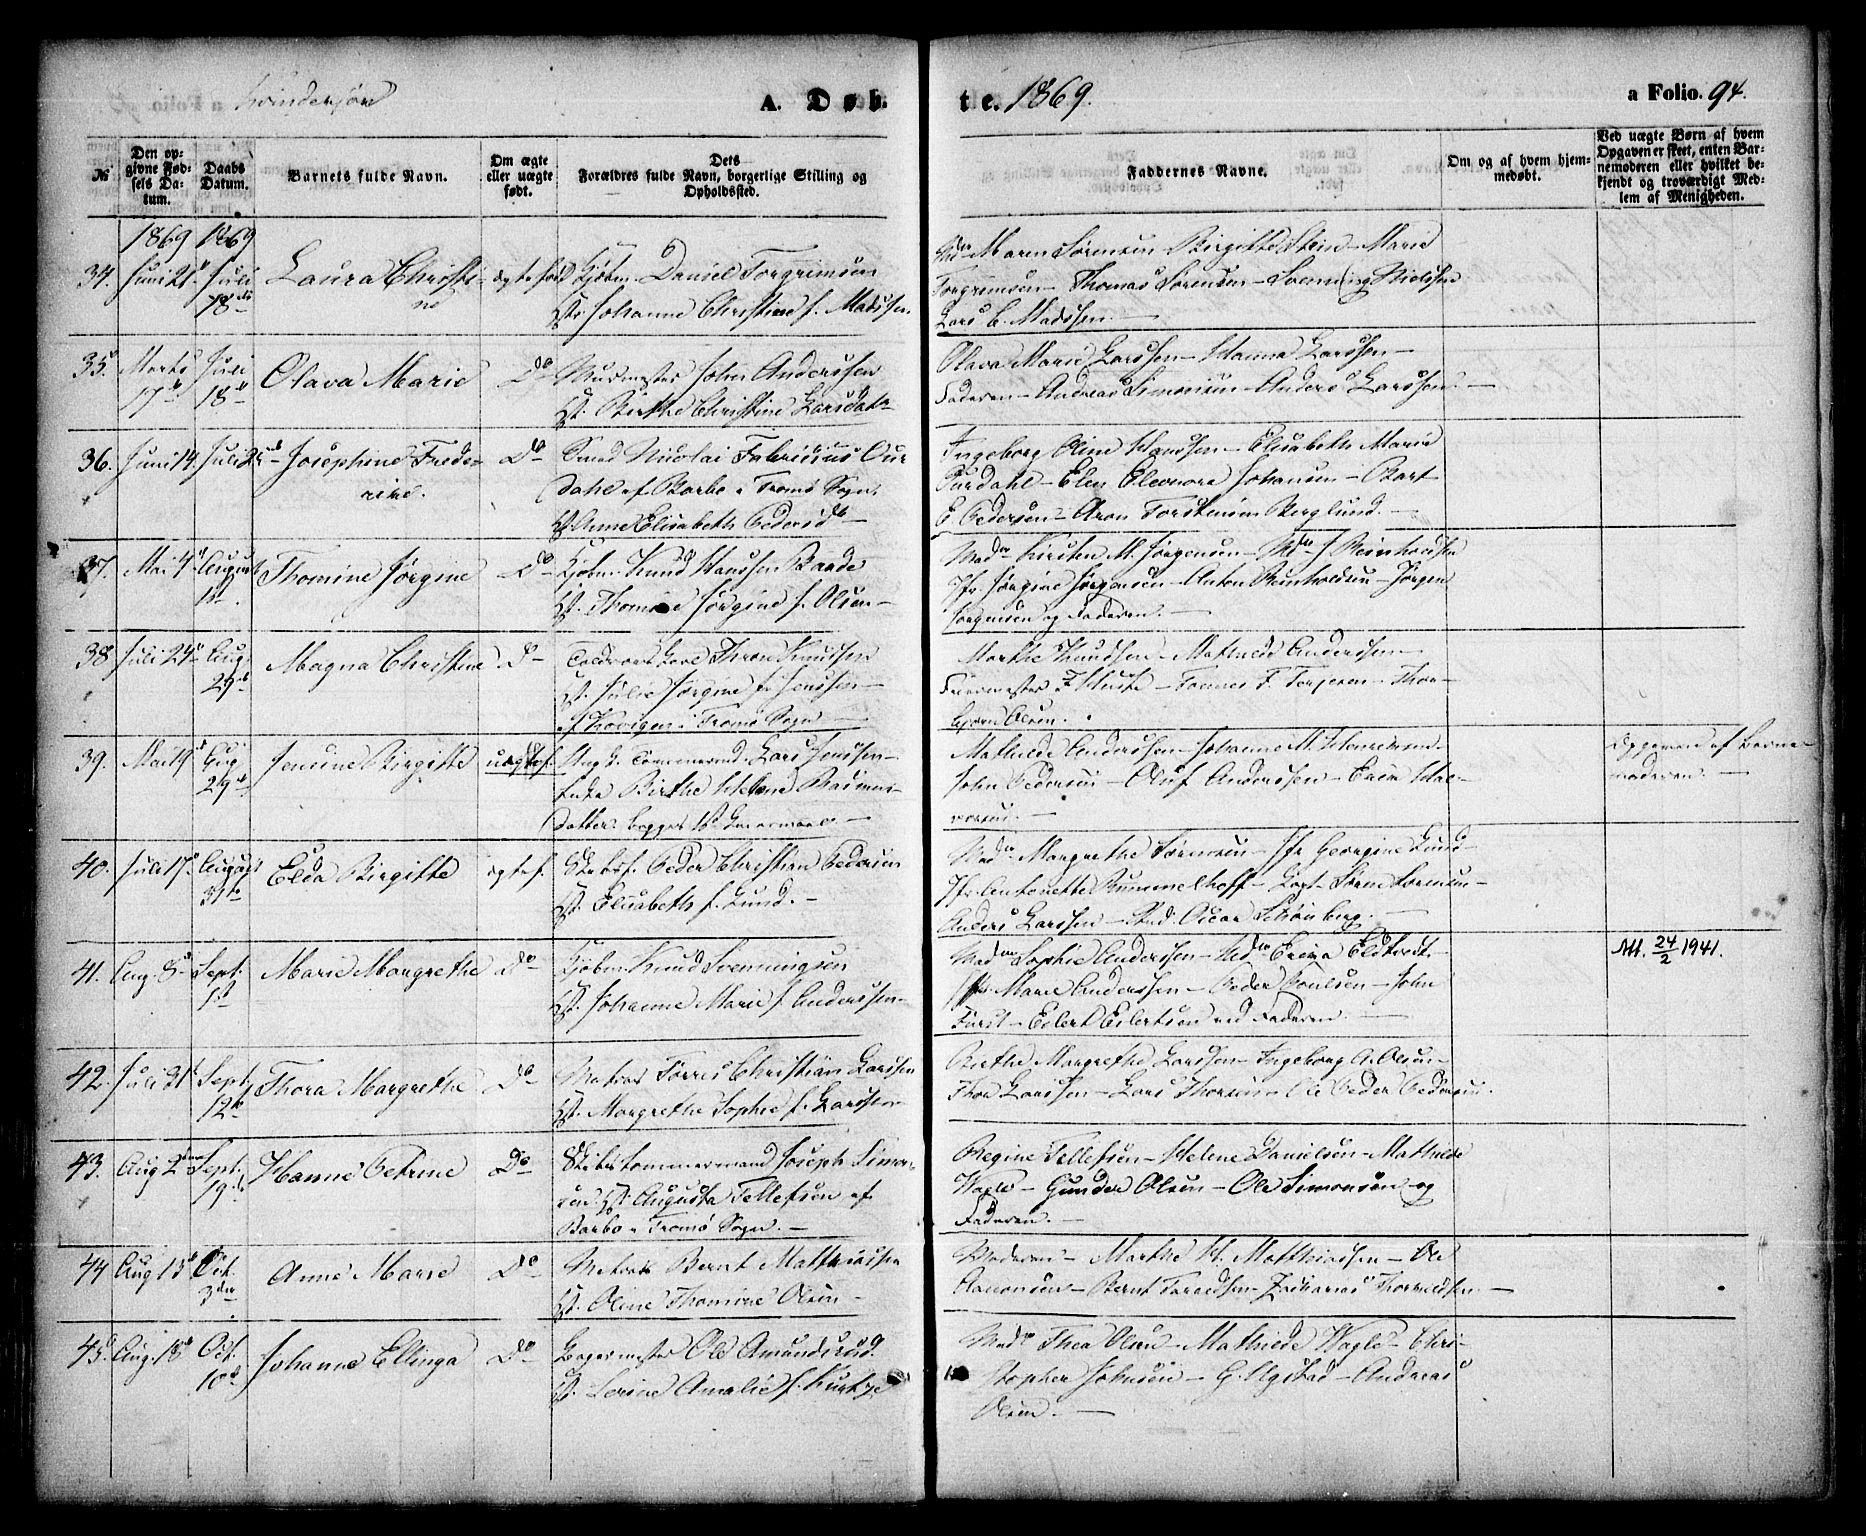 Kvindekjøn A. Døb-te. 1869. a Folio. 94.
No
Den op-
givne Fød-
sels Da-
tum.
Daabs
Datum.
Barnets fulde Navn.
Om ægte
eller uægte
født.
Dets
Forældres fulde Navn, borgerlige Stilling og
Opholdssted.
Faddernes Navne.
Om og af hvem hjem-
medøbt.
Ved uægte Børn af hvem
Opgaven er skeet, enten Bar-
nemoderen eller hvilket be-
kjendt og troværdigt Med-
lem af Menigheden.
1869 1869
34. Juni 21 Juli 18de Laura Christi-
ne
ægte født Kjøbm. Daniel Torgrimsen
H. Johanne Christine f. Madssen.
Md. Maren Sørensen - Birgitte Stein - Marie
Torgrimsen - Thomas Sørensen - Svenning Nielssen
Lars C. Madssen.
35. Marts 17 Juli 18 Olava Marie Do Murmester John Anderssen
H. Birthe Christine Larsdatr
Olava Marie Larssen - Hanna Larssen -
Faderen - Andreas Simonsen - Anders Larssen. -
36. Juni 14. Juli 25 Josephine Frede-
rike.
Do Smed Nicolai Fabricius Our
dahl af Barbo i Tromø Sogn.
H. Anne Elisabeth Pedersdr -
Ingeborg Oline Hanssen - Elisabeth Marie
Ourdahl - Elen Eleonora Johansen - Bart
E Pedersen - Aron Torstensen Berglund. -
37. Mai 4 August 1st. Thomine Jørgine Do Kjøbm. Knud Hanssen Baade
H. Thomine Jørgine f. Olsen -
Madm Kirsten M. Jørgensen - Md. J Reinholdsen
Jfr. Jørgine Jørgensen - Anton Reinholdsen - Jørgen
Jørgensen og Faderen. -
38 Juli 24 Aug. 29 Magna Christine Do
Knudsen
H. Julie Jørgine f. Jenssen
af Kovigen i Tromø Sogn -
Marthe Knudsen - Mathilde Anderssen
- Thor-
bjørn Olsen.
39. Mai 19 Aug 29 Jensine Birgitte uægte f. Ung k. Tømmermd. Lars Jenssen -
Birthe Helene Rasmus-
datter. begges 1st Leiermaal -
Mathilde Anderssen - Johanne M. Henriksen
John Pedersen - Oluf Anderssen - Hal-
vorsen. -
Opgaven af Barne-
moderen. -
40. Juli 17 August 31te Elda Birgitte ægte f. Skibsf. Peder Christian Pedersen
H. Elisabeth f. Lund. -
Madm Margrethe Sørensen - Jfr Georgine Lund
Jfr. Antonette Rummelhoff - Capt. Sørn Sørensen -
Anders Larssen - Stud: Oscar Schønberg. -
41. Aug. 8 Sept. 1st Marie Margrethe Do Kjøbm. Knud Svenningsen
H. Johanne Marie f. Anderssen -
Madm Sophie Anderssen - Mdm
Jfr. Marie Anderssen - Peder Poulsen - John
Fürst - Eilert Eilertsen ved Faderen. -
Att. 24/2 1941.
42. Juli 21 Sept. 12 Thora Margrethe Do Matros Tørres Christian Larssen
H. Margrethe Sophie f. Larssen
Birthe Margrethe Larssen - Ingeborg A. Olsen -
Thea Larssen - Lars Thorsen - Ole Peder Pedersen.
43. Aug 2den Sept. 19 Hanne Petrine Do Skibstømmermand Joseph Simon-
sen H. Augusta Tellefsen af
Barbo i Tromø Sogn. -
Regine Tellefsen - Helene Danielsen - Mathilde
Wagle - Gunder Olsen - Ole Simonsen og
Faderen. -
44 Aug 15 Oct. 3die Anne Marie Do Matros Bernt Matthiassen
H. Oline Thomine Olsen -
Moderen - Marthe H. Matthiassen - Ole
Aanonsen - Bernt Taraldsen Zacharias Thorvaldsen -
45. Aug. 18 Oct. 10d Johanne Ellinga Do Bagermester Ole Amundsrud.
H. Serine Amalie f. Kirkje
Mad. Thea Olsen - Mathilde Wagle - Chri-
stopher Johnsen - G. Ugstad - Andreas
Olsen. -